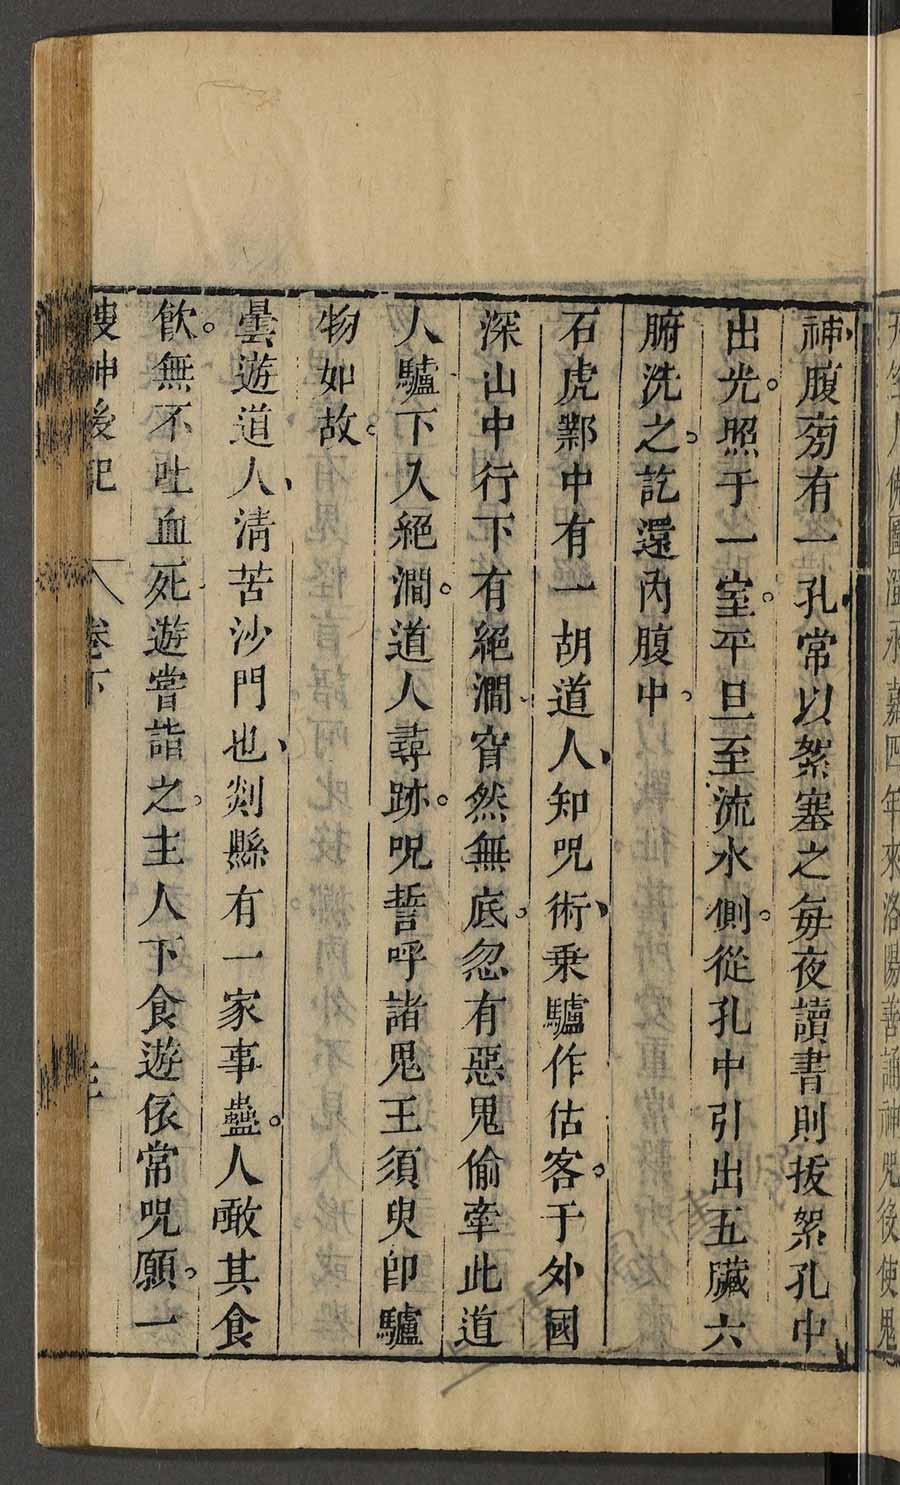 天竺人佛圖澄永嘉四年來洛陽善誦神咒役使鬼
神腹旁有一孔常以絮塞之每夜讀書則拔絮孔中
出光照于一室平旦至流水側從孔中引出五臟六
腑洗之訖還內腹中
石虎鄴中有一胡道人知咒術乘驢作估客于外國
深山中行下有絕澗窅然無底忽有惡鬼偷牽此道
人驢下入絕澗道人尋跡咒誓呼諸鬼王須臾即驢
物如故
曇遊道人清苦沙門也剡縣有一家事蠱人噉其食
飲無不吐血死遊嘗詣之主人下食遊依常咒願一
搜神後記 卷下